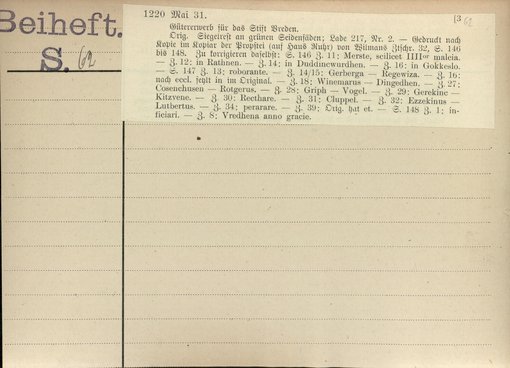 Beiheft.
S. 62
[3 62
1220 Mai 31.
Gütererwerb für das Stift Vreden.
Orig. Siegelrest an grünen Seidenfäden; Lade 217, Nr. 2. — Gedruckt nach
Kopie im Kopiar der Propstei (auf Haus Ruhr) von Wilmans Ztschr. 32, S. 146
bis 148. Zu korrigieren daselbst: S. 146 Z. 11; Merste, scilicet IIIIor maleia.
— Z. 12: in Rathnen. — Z. 14: in Duddincwurdhen. — Z. 16: in Gokkeslo.
— S. 147 Z. 13; roborante. — Z. 14/15: Gerberga — Regewiza. — Z. 16:
nach eccl. fehlt in im Original. — Z. 18; Winemarus — Dingedhen. — Z. 27:
Cosenchusen — Rotgerus. — Z. 28: Griph — Vogel. — Z. 29: Gerekine —
Kitzvene. — Z. 30: Recthare. — Z. 31: Cluppel. — Z. 32: Ezzekinus —
Lutbertus. — Z. 34; perarare. — Z. 39; Orig. hat et. — S. 148 Z. 1: in-
ficiari. — Z. 8; Vredhena anno gracie.